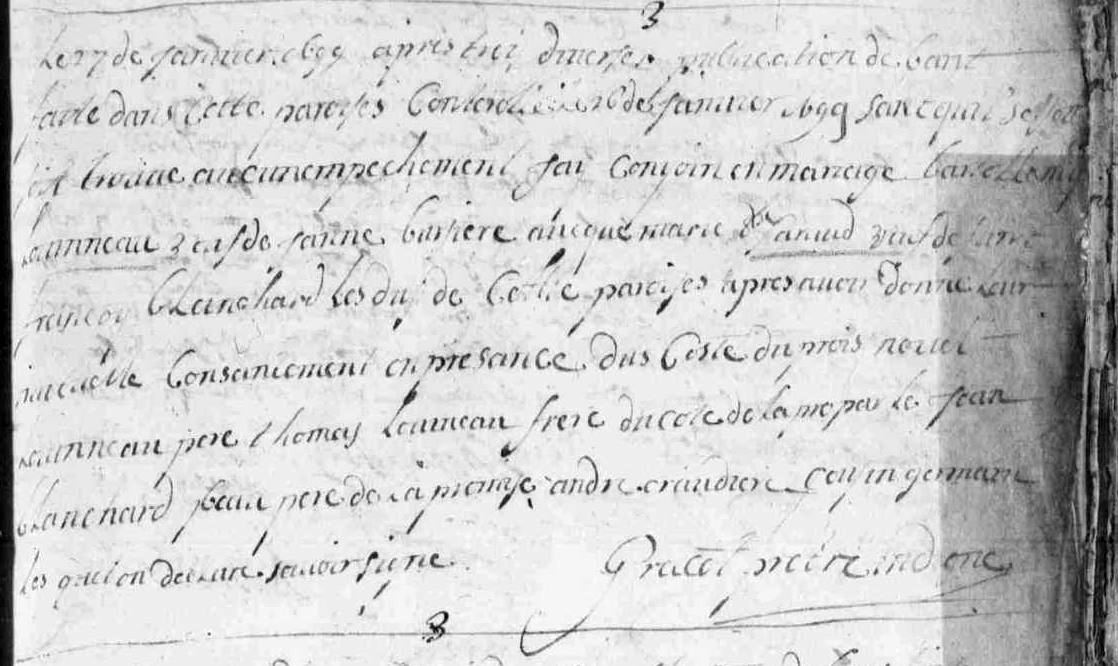 3
Le 27 de janvier 1699 apres troi diverses publication de bant
faite dans cette paroises Controllé le 26 de janvier 1699 sans qui
trouve aucun empechement jai conjoin en mariage bartellemy
Launneau veuf de janne barriere avecque marie veuf de
blanchard les dus de cette paroises apres avoir donne leur
mutuelle Consantement en presance dus Coste du nouel
Launneau pere thomas Launeau frere du cote de la jean
blanchard beau pere de la andre craudiere cousin germain
les quel on declare savoir signe Gracet pretre indigne
3